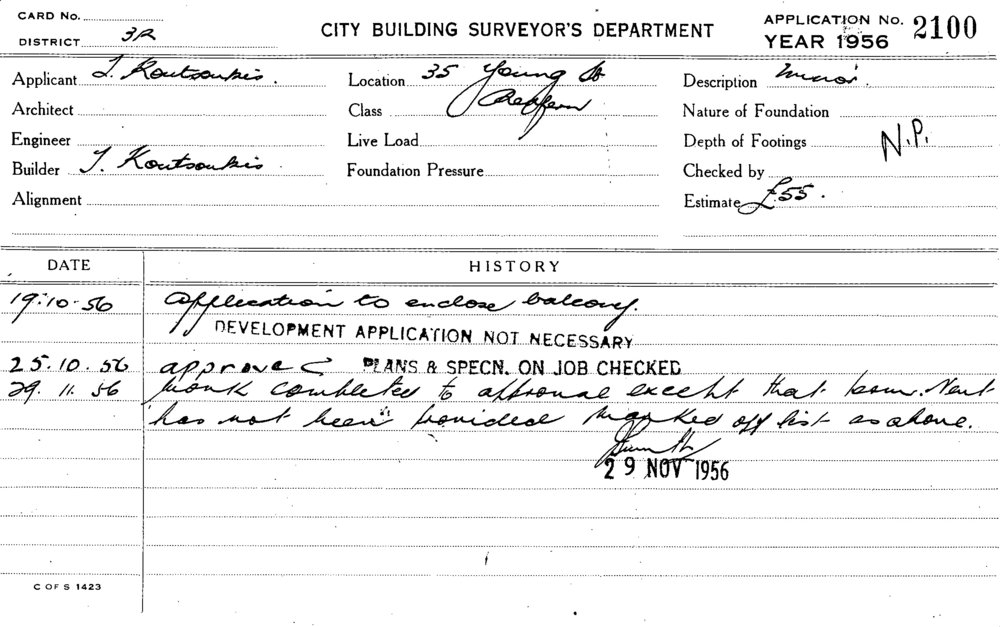 CARD No.
DISTRICT 3R
CITY BUILDING SURVEYOR'S DEPARTMENT
APPLICATION No. 2100
YEAR 1956
Applicant Koutsoukis.
Location 35 Young St
Redfern
Description Minor.
Architect
Class
Nature of Foundation
Engineer
Live Load
Depth of Footings N.P.
Builder Koutsoukis
Foundation Pressure
Checked by
Alignment
Estimate £55.
DATE HISTORY
19.10.56 Application to enclose balcony.
DEVELOPMENT APPLICATION NOT NECESSARY
25.10.56 approved PLANS & SPECN. ON JOB CHECKED
29.11.56 Work completed to approval except that Vent
has not been provided marked off list as above.
29 NOV 1956
C OF S 1423